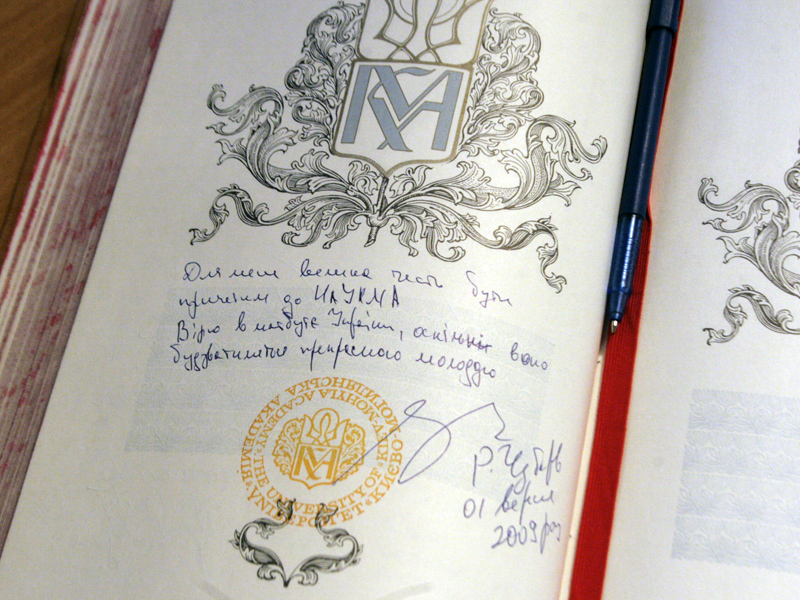 КМА
Для мене велика честь бути
причетним до НАУКМА
Вірю в майбутнє України, оскільки воно
будуватиметься прекрасною молоддю
THE UNIVERSITY OF «KYIV-MOHYLA ACADEMY»
УНІВЕРСИТЕТ «КИЄВО-МОГИЛЯНСЬКА АКАДЕМІЯ»
КМА
Р. Чубарв
01 верес
2009 року